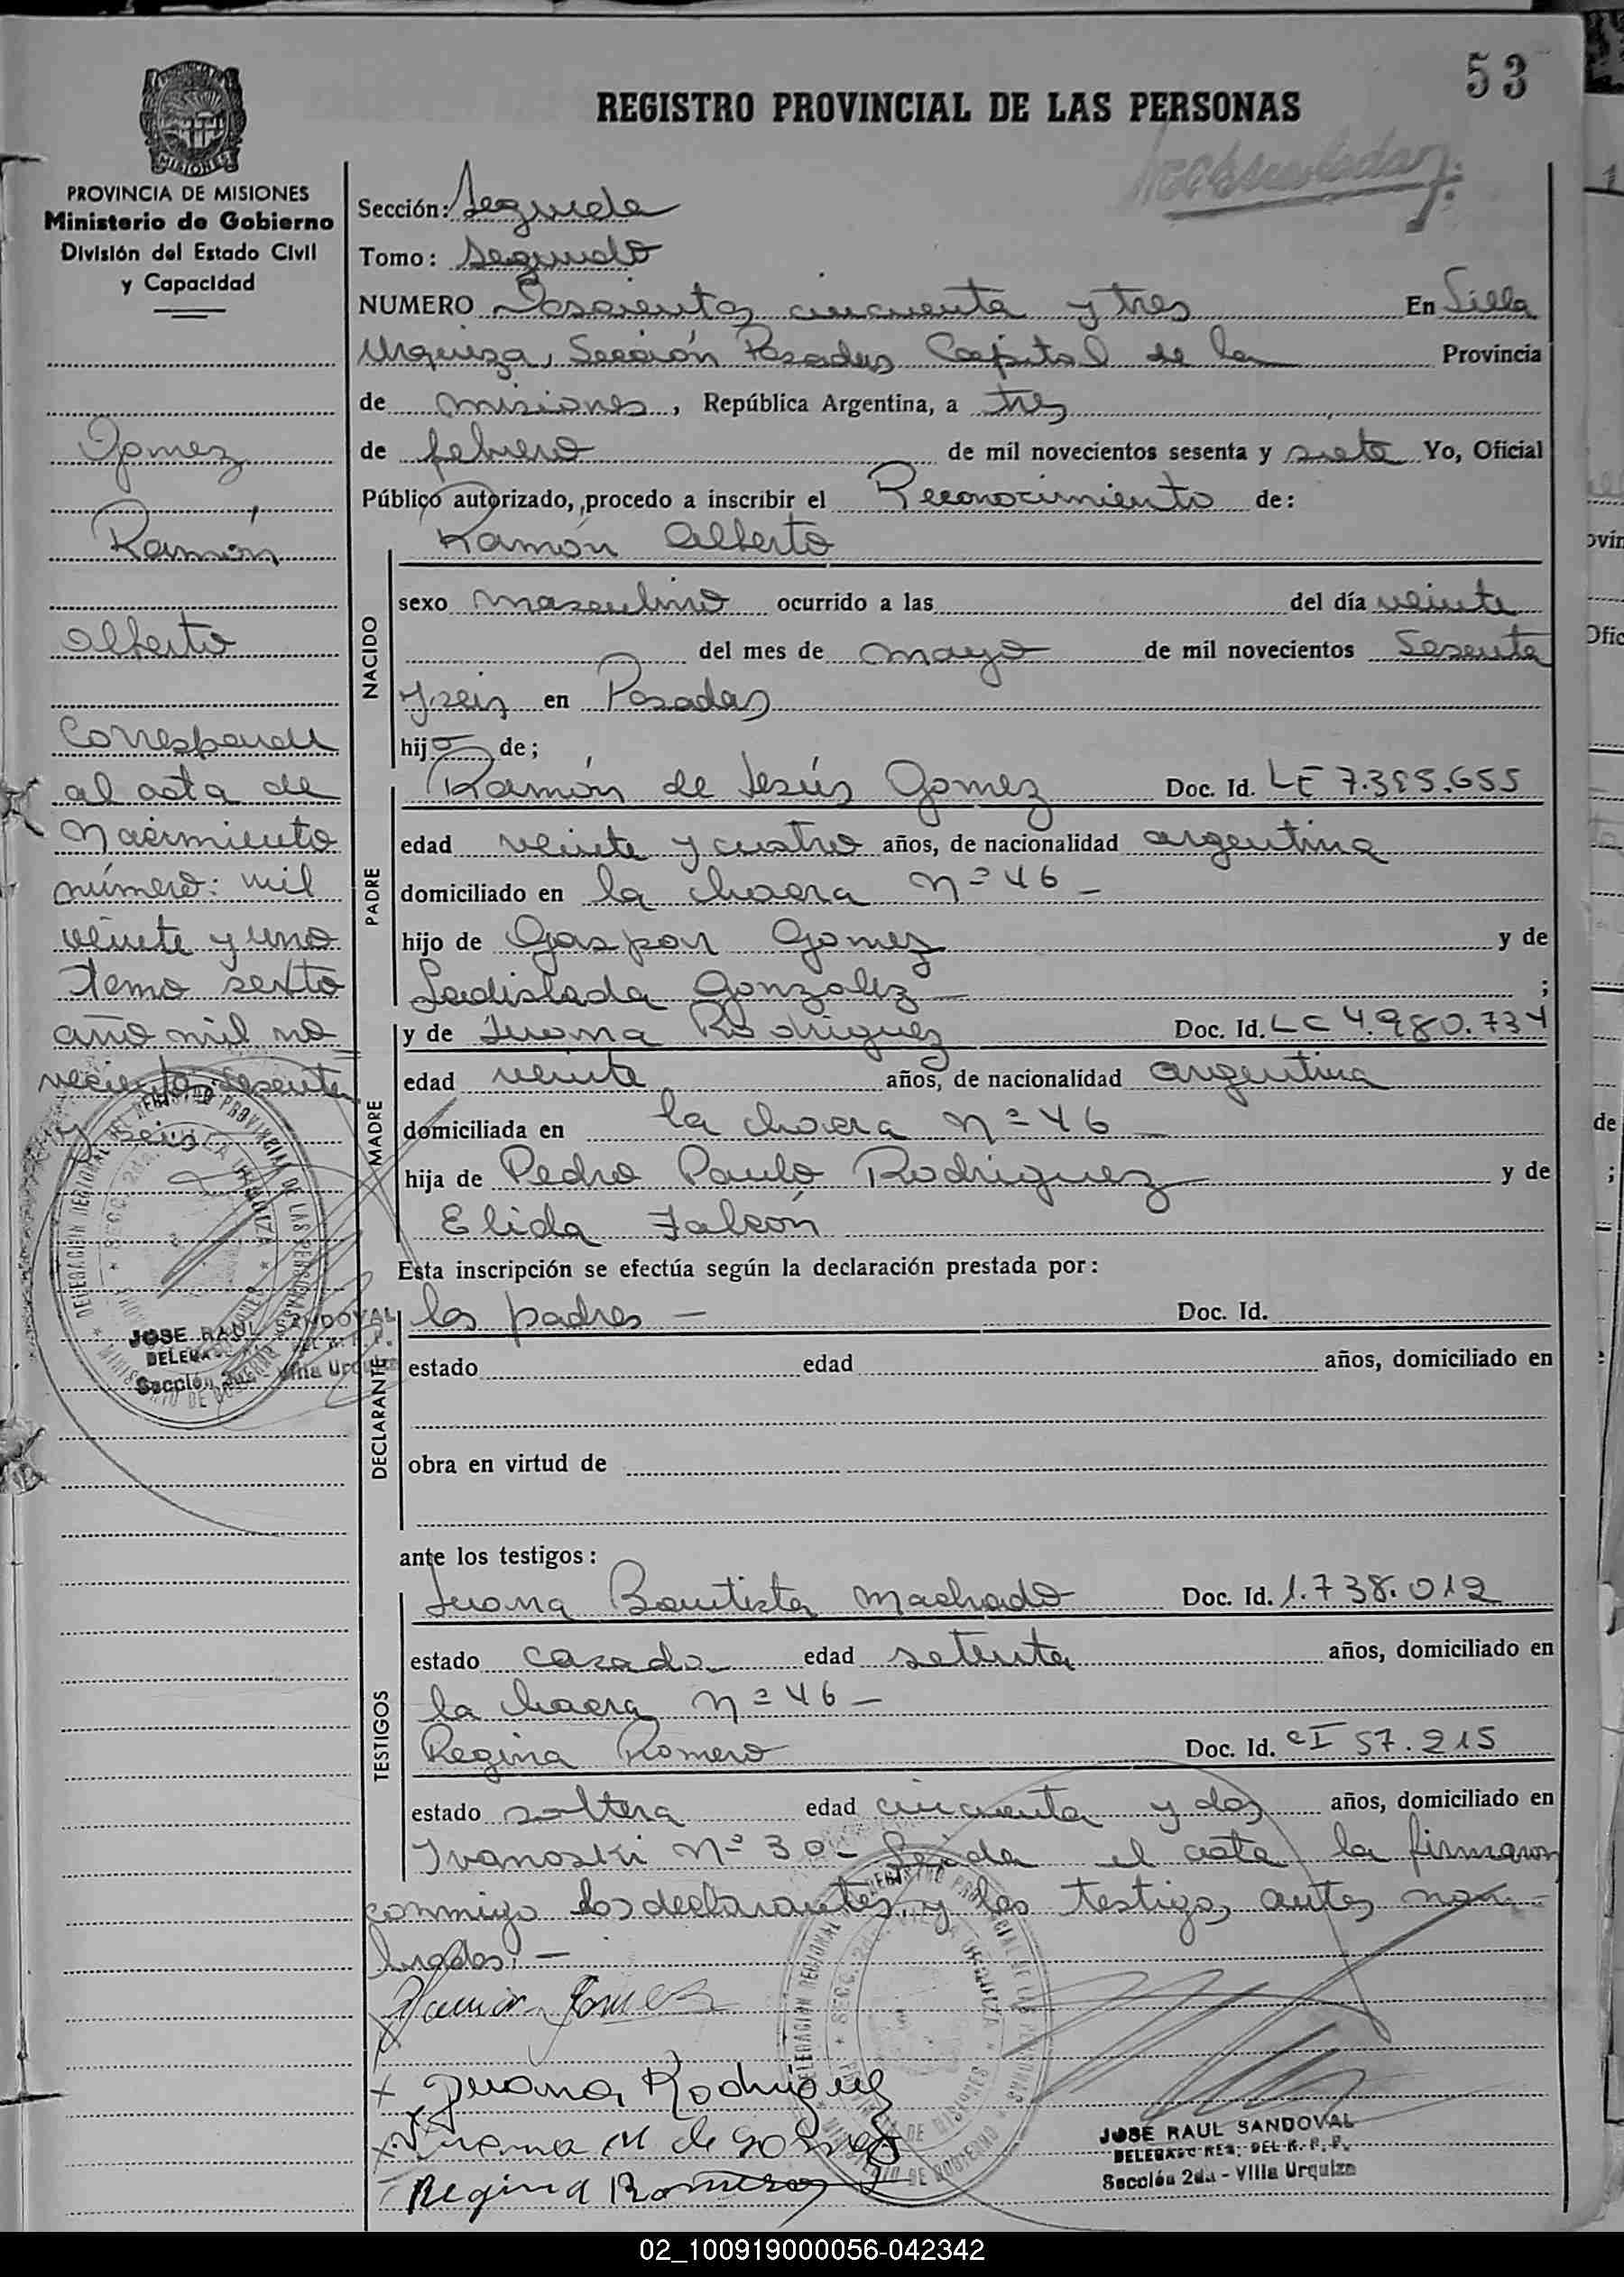 53
REGISTRO PROVINCIAL DE LAS PERSONAS
MISIONES
PROVINCIA DE MISIONES
Ministerio de Gobierno
División del Estado Civil
y Capacidad
Gomez
Ramón
Alberto
Corresponde
al acta de
Nacimiento
número: mil
veinte y uno
Tomo sexto
año mil no
vecientos sesenta
y seis
JOSE RAUL SANDOVAL
Sección 2da. Villa Urquiza
Sección: Segunda
Tomo: Segundo
NUMERO Doscientos cincuenta y tres En Villa
Urquiza, Sección Posadas Capital de la Provincia
de misiones, República Argentina, a tres
de febrero de mil novecientos sesenta y siete Yo, Oficial
Público autorizado, procedo a inscribir el Reconocimiento de:
Ramón Alberto
NACIDO
sexo masculino ocurrido a las del día veinte
del mes de mayo de mil novecientos sesenta
y seis en Posadas
hijo de;
PADRE
Ramón de Jesús Gomez Doc. Id. LE 7.395.655
edad veinte y cuatro años, de nacionalidad argentina
domiciliado en la chacra Nº 46 -
hijo de Gaspar Gomez y de
Ladislada Gonzalez - ;
MADRE
y de Juana Rodriguez Doc. Id. LC 4.980.734
edad veinte años, de nacionalidad argentina
domiciliada en la chacra Nº 46 -
hija de Pedro Paulo Rodriguez y de
Elida Falcón
Esta inscripción se efectúa según la declaración prestada por:
DECLARANTE
los padres - Doc. Id.
estado edad años, domiciliado en
obra en virtud de
ante los testigos:
TESTIGOS
Juana Bautista Machado Doc. Id. 1.738.012
estado casada edad setenta años, domiciliado en
la chacra Nº 46 -
Regina Romero Doc. Id. CI 57.215
estado soltera edad cincuenta y dos años, domiciliado en
Ivanoski Nº 30 - Leida el acta la firmaron
conmigo los declarantes y los testigos antes nom-
brados. -
Ramón Gomez
Juana Rodriguez
Juana M de Gomez
Regina Romero
JOSE RAUL SANDOVAL
DELEGADO REG. DEL R. P. P.
Sección 2da - Villa Urquiza
02_100919000056-042342